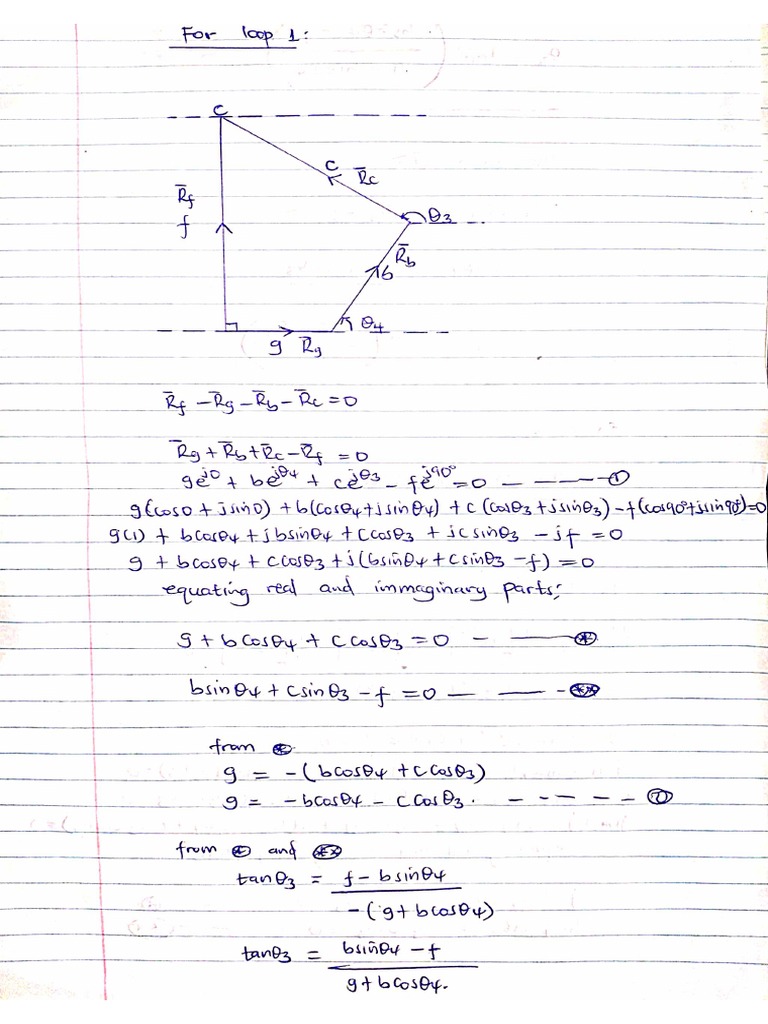 For loop 1:
C
C R̄c
R̄f
f
θ3
R̄b
b
θ4
g R̄g
R̄f - R̄g - R̄b - R̄c = 0
R̄g + R̄b + R̄c - R̄f = 0
ge^j0 + be^jθ4 + ce^jθ3 - fe^j90° = 0 - ——— ①
g(cos0 + jsin0) + b(cosθ4 + jsinθ4) + c(cosθ3 + jsinθ3) - f(cos90° + jsin90°) = 0
g(1) + bcosθ4 + jbsinθ4 + ccosθ3 + jcsinθ3 - jf = 0
g + bcosθ4 + ccosθ3 + j(bsinθ4 + csinθ3 - f) = 0
equating real and immaginary parts;
g + bcosθ4 + ccosθ3 = 0 - ——— ⊛
bsinθ4 + csinθ3 - f = 0 — — - (**)
from ⊛
g = -(bcosθ4 + ccosθ3)
g = -bcosθ4 - ccosθ3. - - - - - ⑦
from ⊛ and (**)
tanθ3 = f - bsinθ4
-(g + bcosθ4)
tanθ3 = bsinθ4 - f
g + bcosθ4.